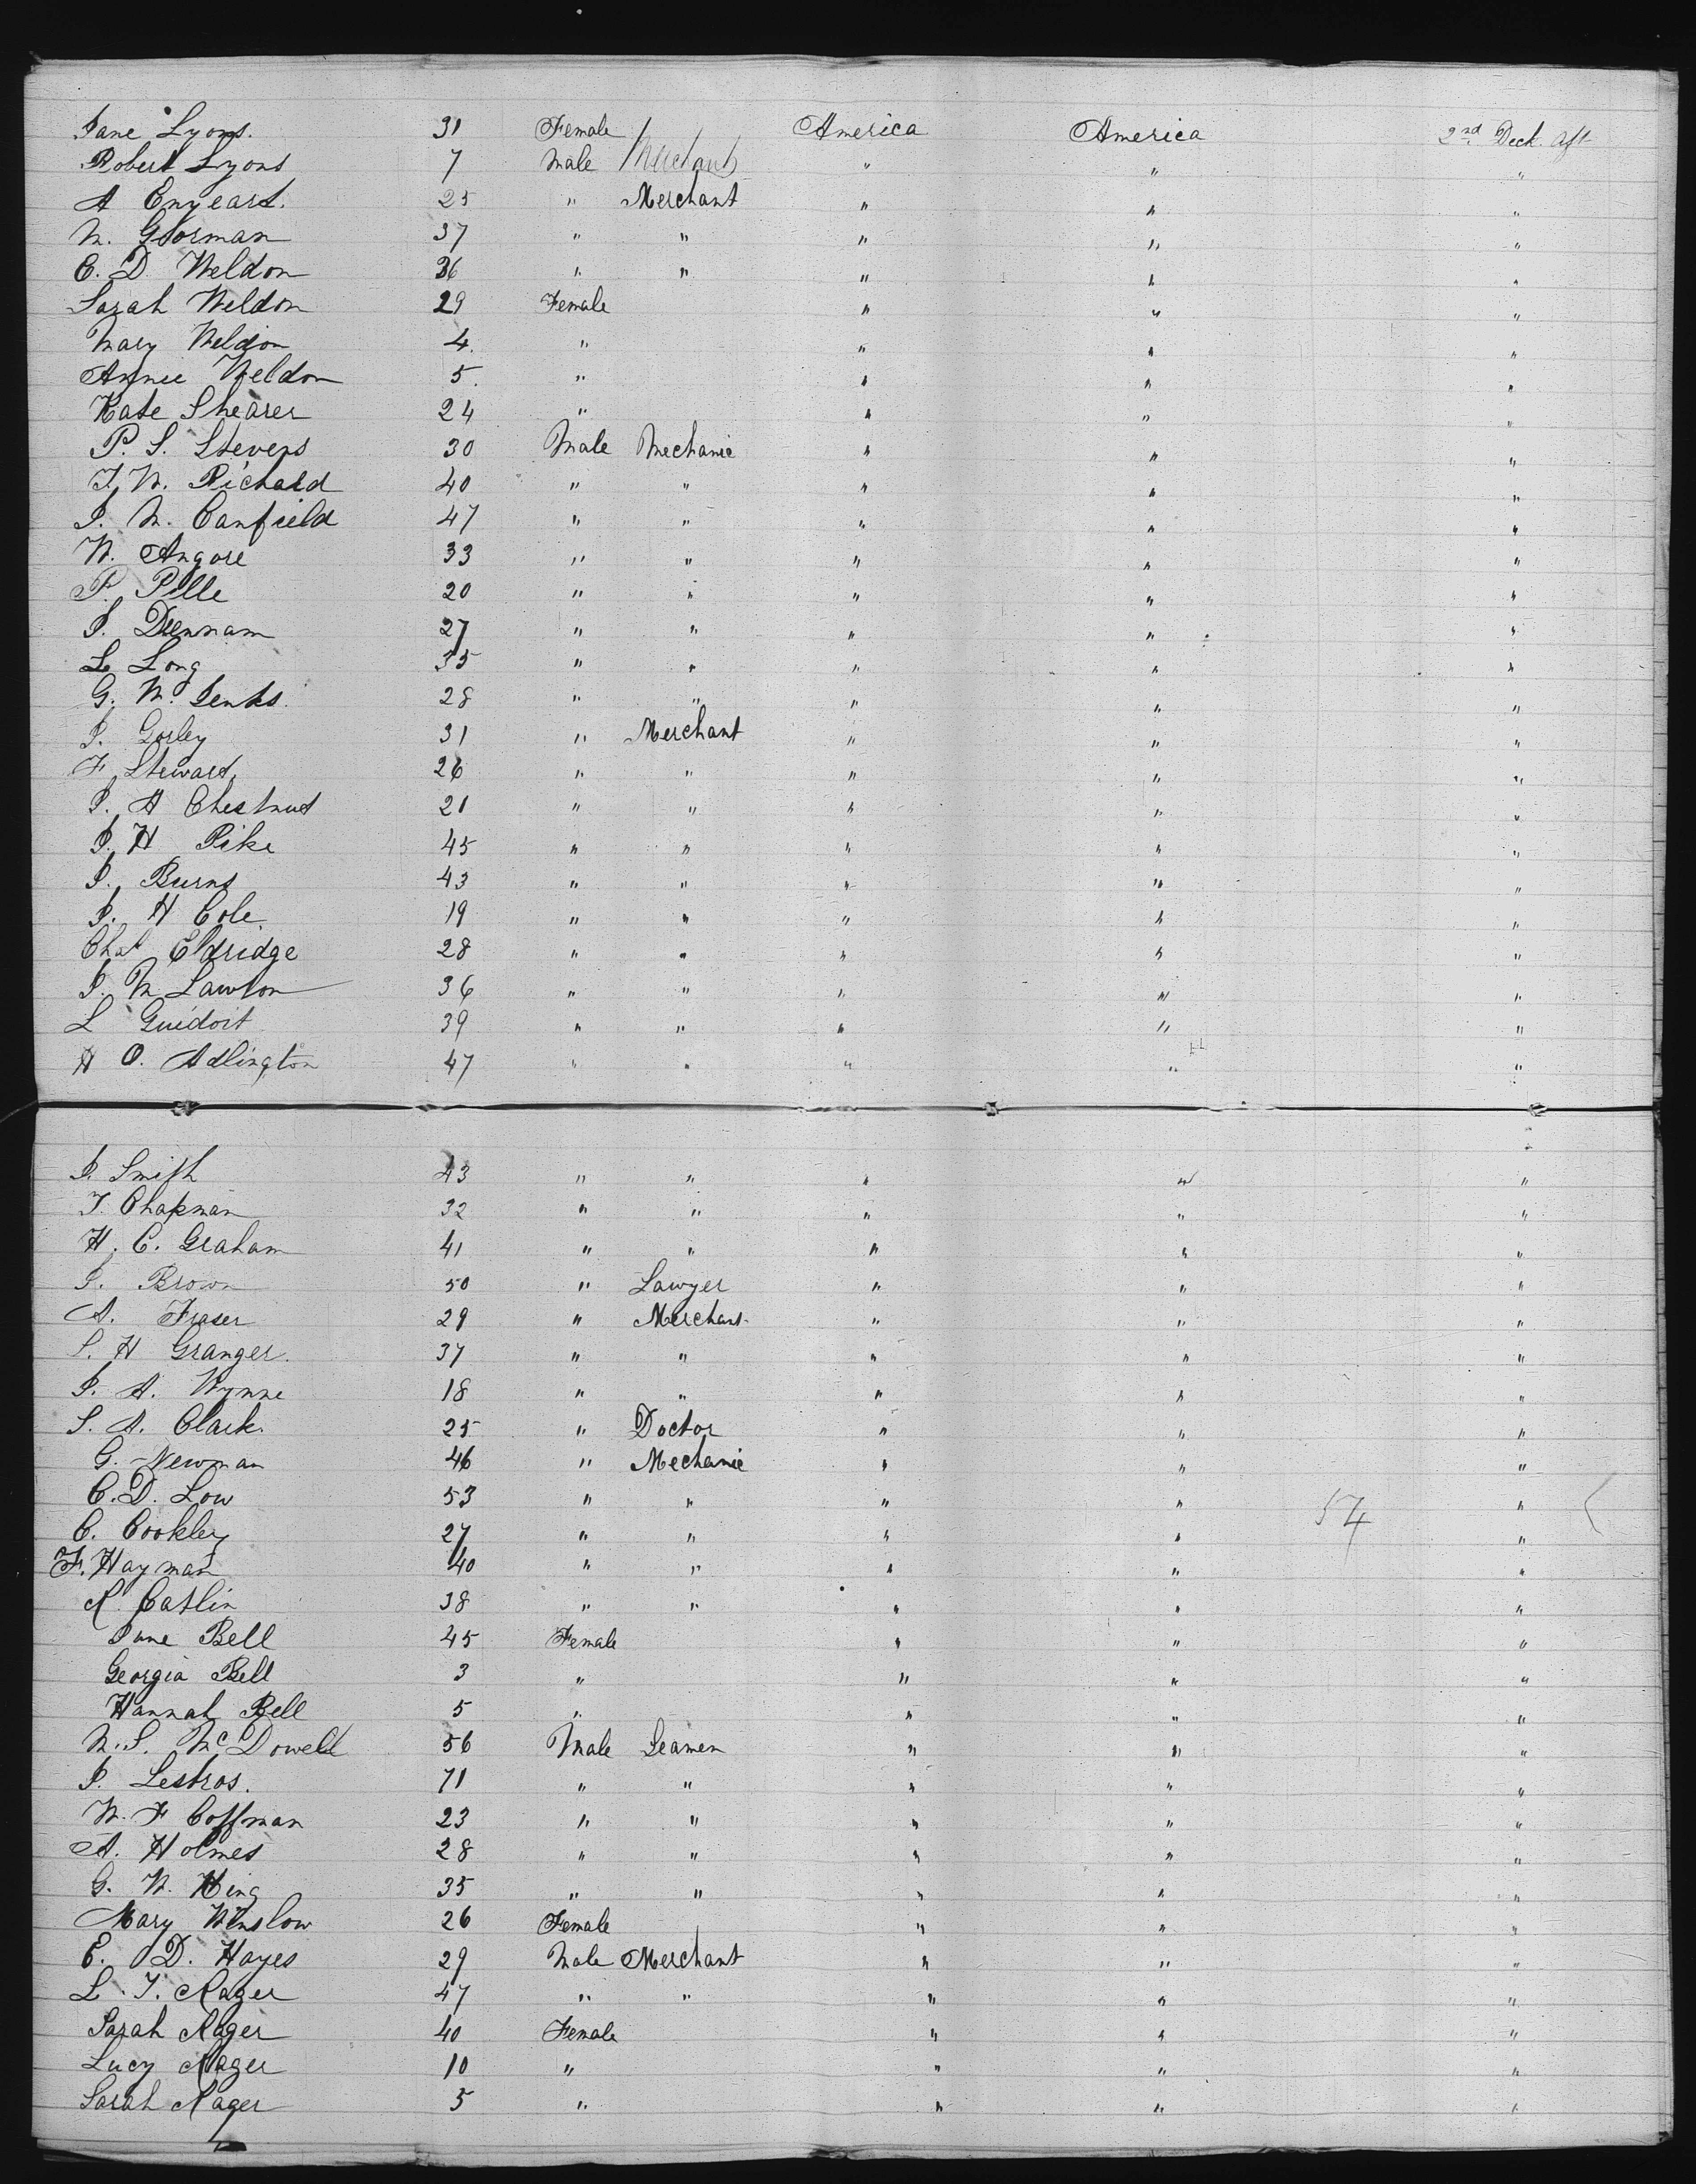 Jane Lyons. 31 Female America America 2nd Deck. Aft
Robert Lyons 7 Male Merchant " " "
A Enyeart. 25 " Merchant " " "
M. Gorman 37 " " " " "
C. D. Weldon 36 " " " " "
Sarah Weldon 29 Female " " "
Mary Weldon 4. " " " "
Annie Weldon 5. " " " "
Kate Shearer 24 " " " "
P. S. Stevens 30 Male Mechanic " " "
T. W. Richard 40 " " " " "
J. M. Canfield 47 " " " " "
W. Angore 33 " " " " "
P. Pille 20 " " " " "
J. Dennam 27 " " " " "
L. Long 35 " " " " "
G. W. Jenks. 28 " " " " "
J. Gorley 31 " Merchant " " "
F. Stewart, 26 " " " " "
J. A Chestnut 21 " " " " "
J. H Pike 45 " " " " "
J. Burns 43 " " " " "
J. H Cole. 19 " " " " "
Chas Eldridge 28 " " " " "
J. M Lawton 36 " " " " "
L Guidoit 39 " " " " "
A O. Adlington 47 " " " " "
J. Smith 43 " " " " "
T. Chapman 32 " " " " "
H. C. Graham 41 " " " " "
J. Brown 50 " Lawyer " " "
A. Fraser 29 " Merchant " " "
S. H Granger. 37 " " " " "
J. A. Wynne 18 " " " " "
S. A. Clark. 25 " Doctor " " "
G. Newman 46 " Mechanic " " "
C. D. Low 53 " " " " "
54
C. Cookley 27 " " " " "
F. Hayman 40 " " " " "
R. Catlin 38 " " " " "
Jane Bell 45 Female " " "
Georgia Bell 3 " " " "
Hannah Bell 5 " " " "
M. S. McDowell 56 Male Seamen " " "
J. Lestros. 71 " " " " "
W. F Coffman 23 " " " " "
A. Holmes 28 " " " " "
G. W. King 35 " " " " "
Mary Winslow 26 Female " " "
E. D. Hayes 29 Male Merchant " " "
L. T. Rager 47 " " " " "
Sarah Rager 40 Female " " "
Lucy Rager 10 " " " "
Sarah Rager 5 " " " "